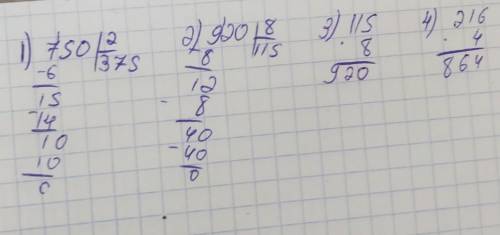 1) 750 | 2
-6 | 375
15
-14
10
10
0
2) 920 | 8
8 | 115
12
- 8
40
- 40
0
3) 115
. 8
920
4) 216
. 4
864